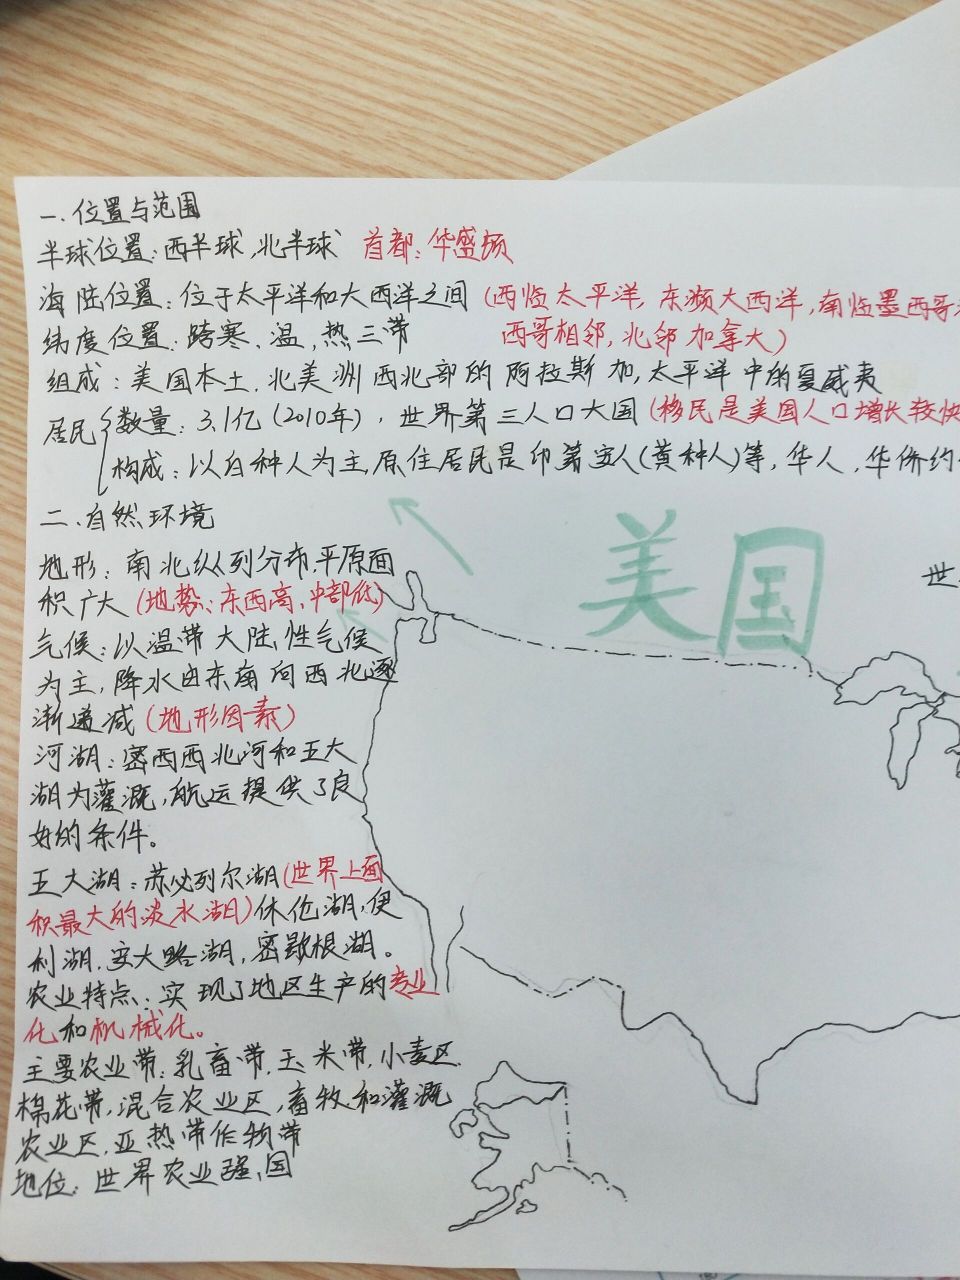 一.位置与范围
半球位置:西半球,北半球 首都:华盛顿
海陆位置:位于太平洋和大西洋之间(西临太平洋,东濒大西洋,南临墨西哥
纬度位置:跨寒、温,热三带 西哥相邻,北邻加拿大)
组成:美国本土.北美洲西北部的阿拉斯加,太平洋中的夏威夷
居民 数量:3.1亿(2010年),世界第三人口大国(移民是美国人口增长较快
构成:以白种人为主,原住居民是印第安人(黄种人)等,华人,华侨约
二、自然环境
美国
世
地形:南北纵列分布,平原面
积广大(地势:东西高,中部低)
气候:以温带大陆性气候
为主,降水由东南向西北逐
渐递减(地形因素)
河湖:密西西北河和五大
湖为灌溉,航运提供了良
好的条件。
五大湖:苏必列尔湖(世界上面
积最大的淡水湖)休伦湖,伊
利湖,安大略湖,密歇根湖。
农业特点:实现了地区生产的专业
化和机械化。
主要农业带:乳畜带,玉米带,小麦区
棉花带,混合农业区,畜牧和灌溉
农业区,亚热带作物带
地位:世界农业强国